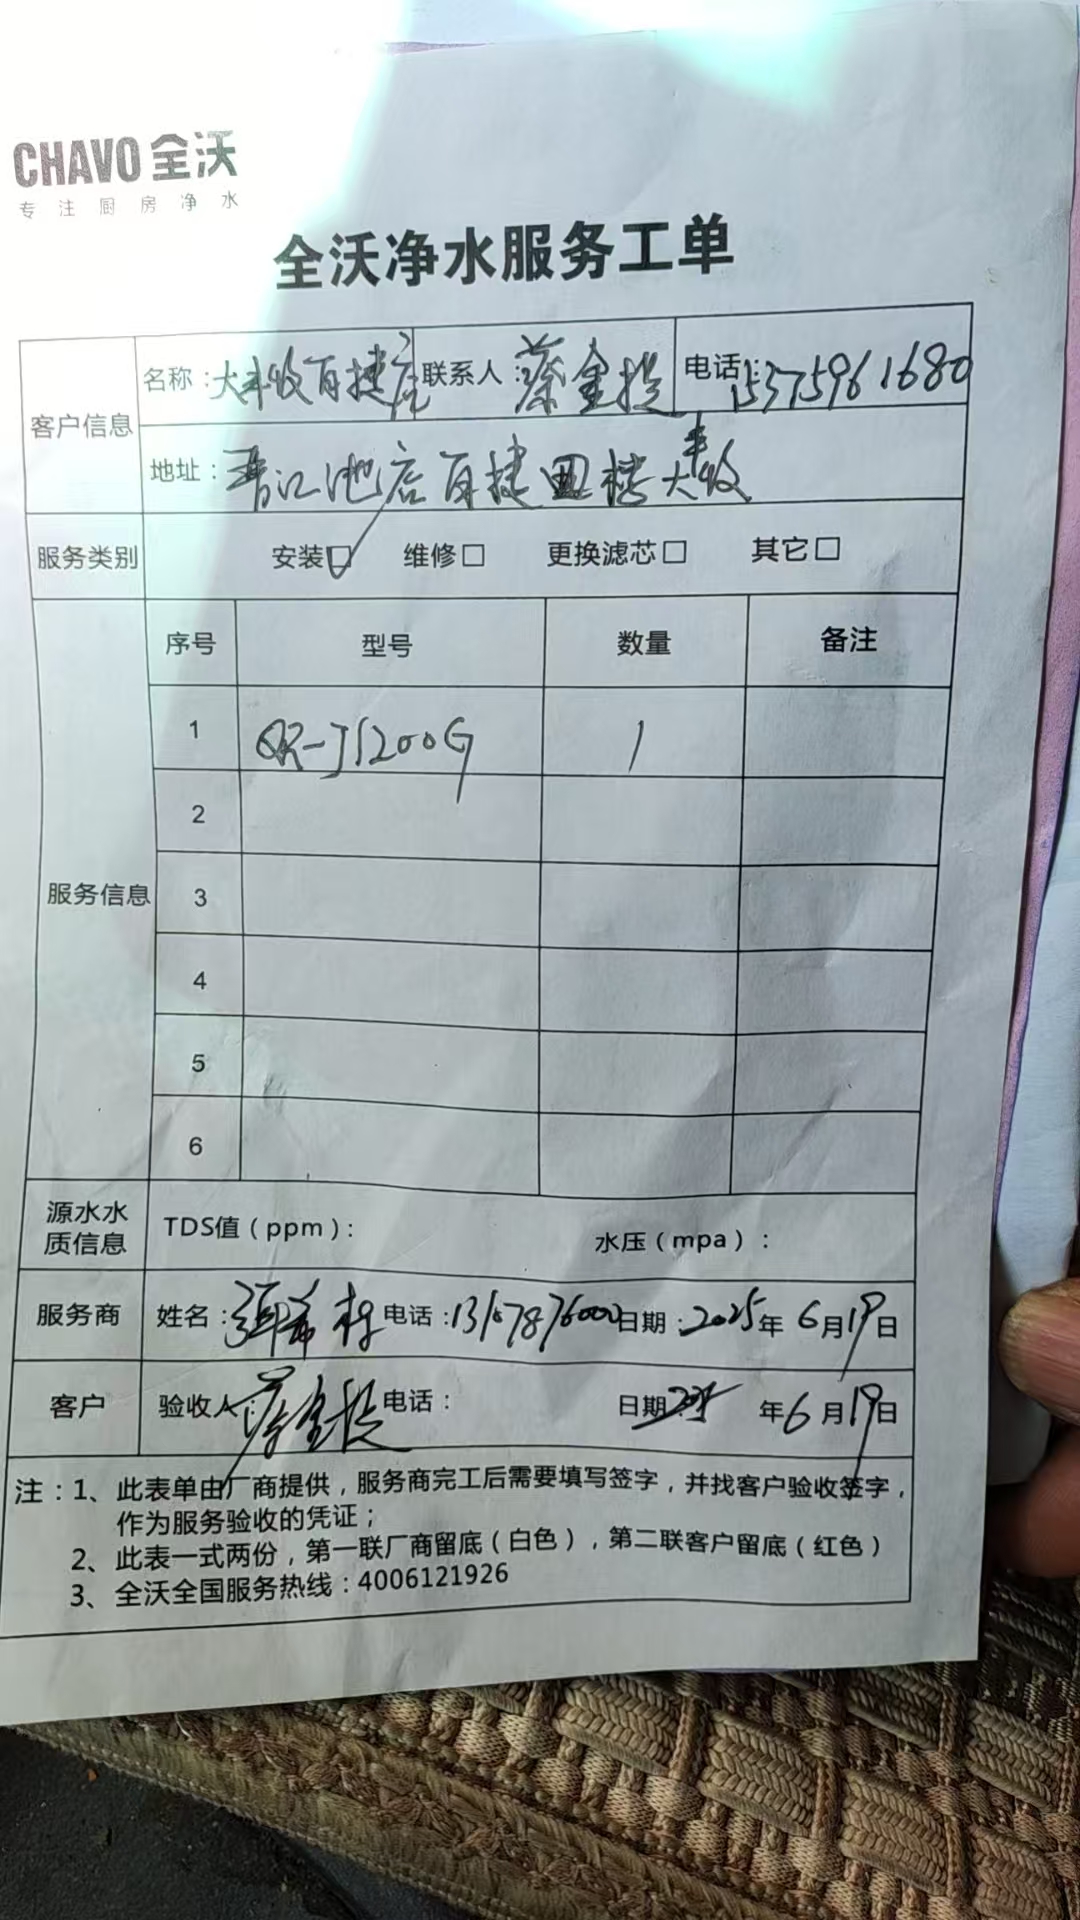 CHAVO 全沃
专注厨房净水
全沃净水服务工单
客户信息
名称：大丰收百捷店 联系人：蔡金挺 电话：15375961680
地址：晋江池店百捷四楼大丰收
服务类别 安装☑ 维修□ 更换滤芯□ 其它□
服务信息
序号 型号 数量 备注
1 QR-JS200G 1
2
3
4
5
6
源水水质信息 TDS值（ppm）： 水压（mpa）：
服务商 姓名： 电话： 日期：2025年6月19日
客户 验收人：蔡金挺 电话： 日期：2025年6月19日
注：1、此表单由厂商提供，服务商完工后需要填写签字，并找客户验收签字，
作为服务验收的凭证；
2、此表一式两份，第一联厂商留底（白色），第二联客户留底（红色）
3、全沃全国服务热线：4006121926